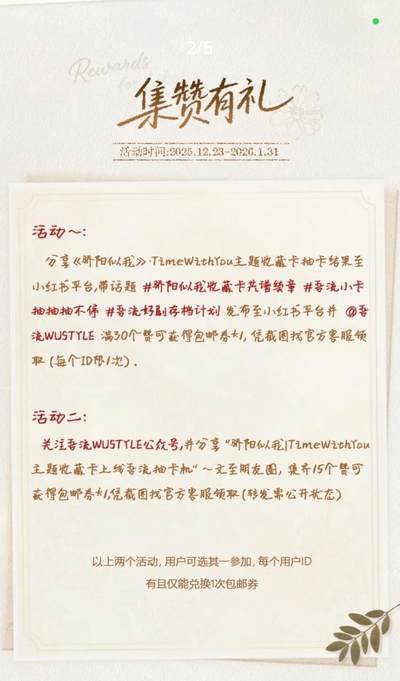 2/5
Rewards
for
集赞有礼
活动时间:2025.12.23-2026.1.31
活动一:
分享《骄阳似我》·TimeWithYou主题收藏卡抽卡结果至
小红书平台,带话题 #骄阳似我收藏卡共谱续章 #吾流小卡
抽抽抽不停 #吾流好剧存档计划 发布至小红书平台并 @吾
流WUSTYLE 满30个赞可获得包邮券*1, 凭截图找官方客服领
取 (每个ID限1次) .
活动二:
关注吾流WUSTYLE公众号,并分享 “骄阳似我|TimeWithYou
主题收藏卡上线吾流抽卡机” ~文至朋友圈, 集齐15个赞可
获得包邮券*1,凭截图找官方客服领取 (转发需公开状态)
以上两个活动, 用户可选其一参加, 每个用户ID
有且仅能兑换1次包邮券